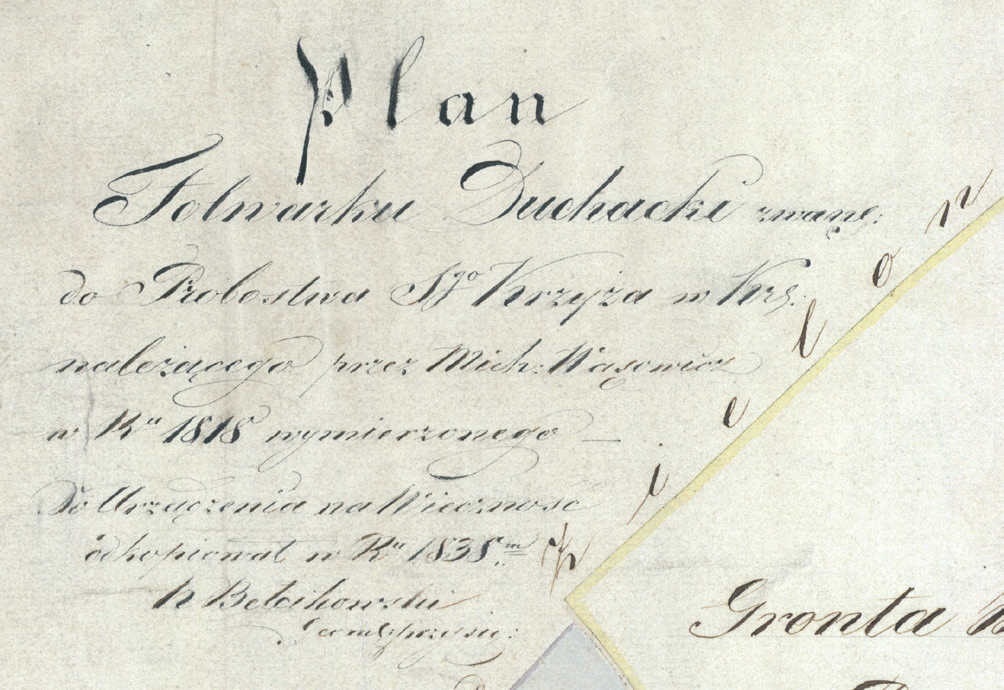 Plan
Folwarku Duchacki zwang:
do Probostwa Sgo Krzyża w Krg:
należącego przez Mich: Wąsowicz
w Ru 1818 wymierzonego
Do Urządzenia na Wieczność
odkopiował w Ru 1838m
Zielon
Gronta